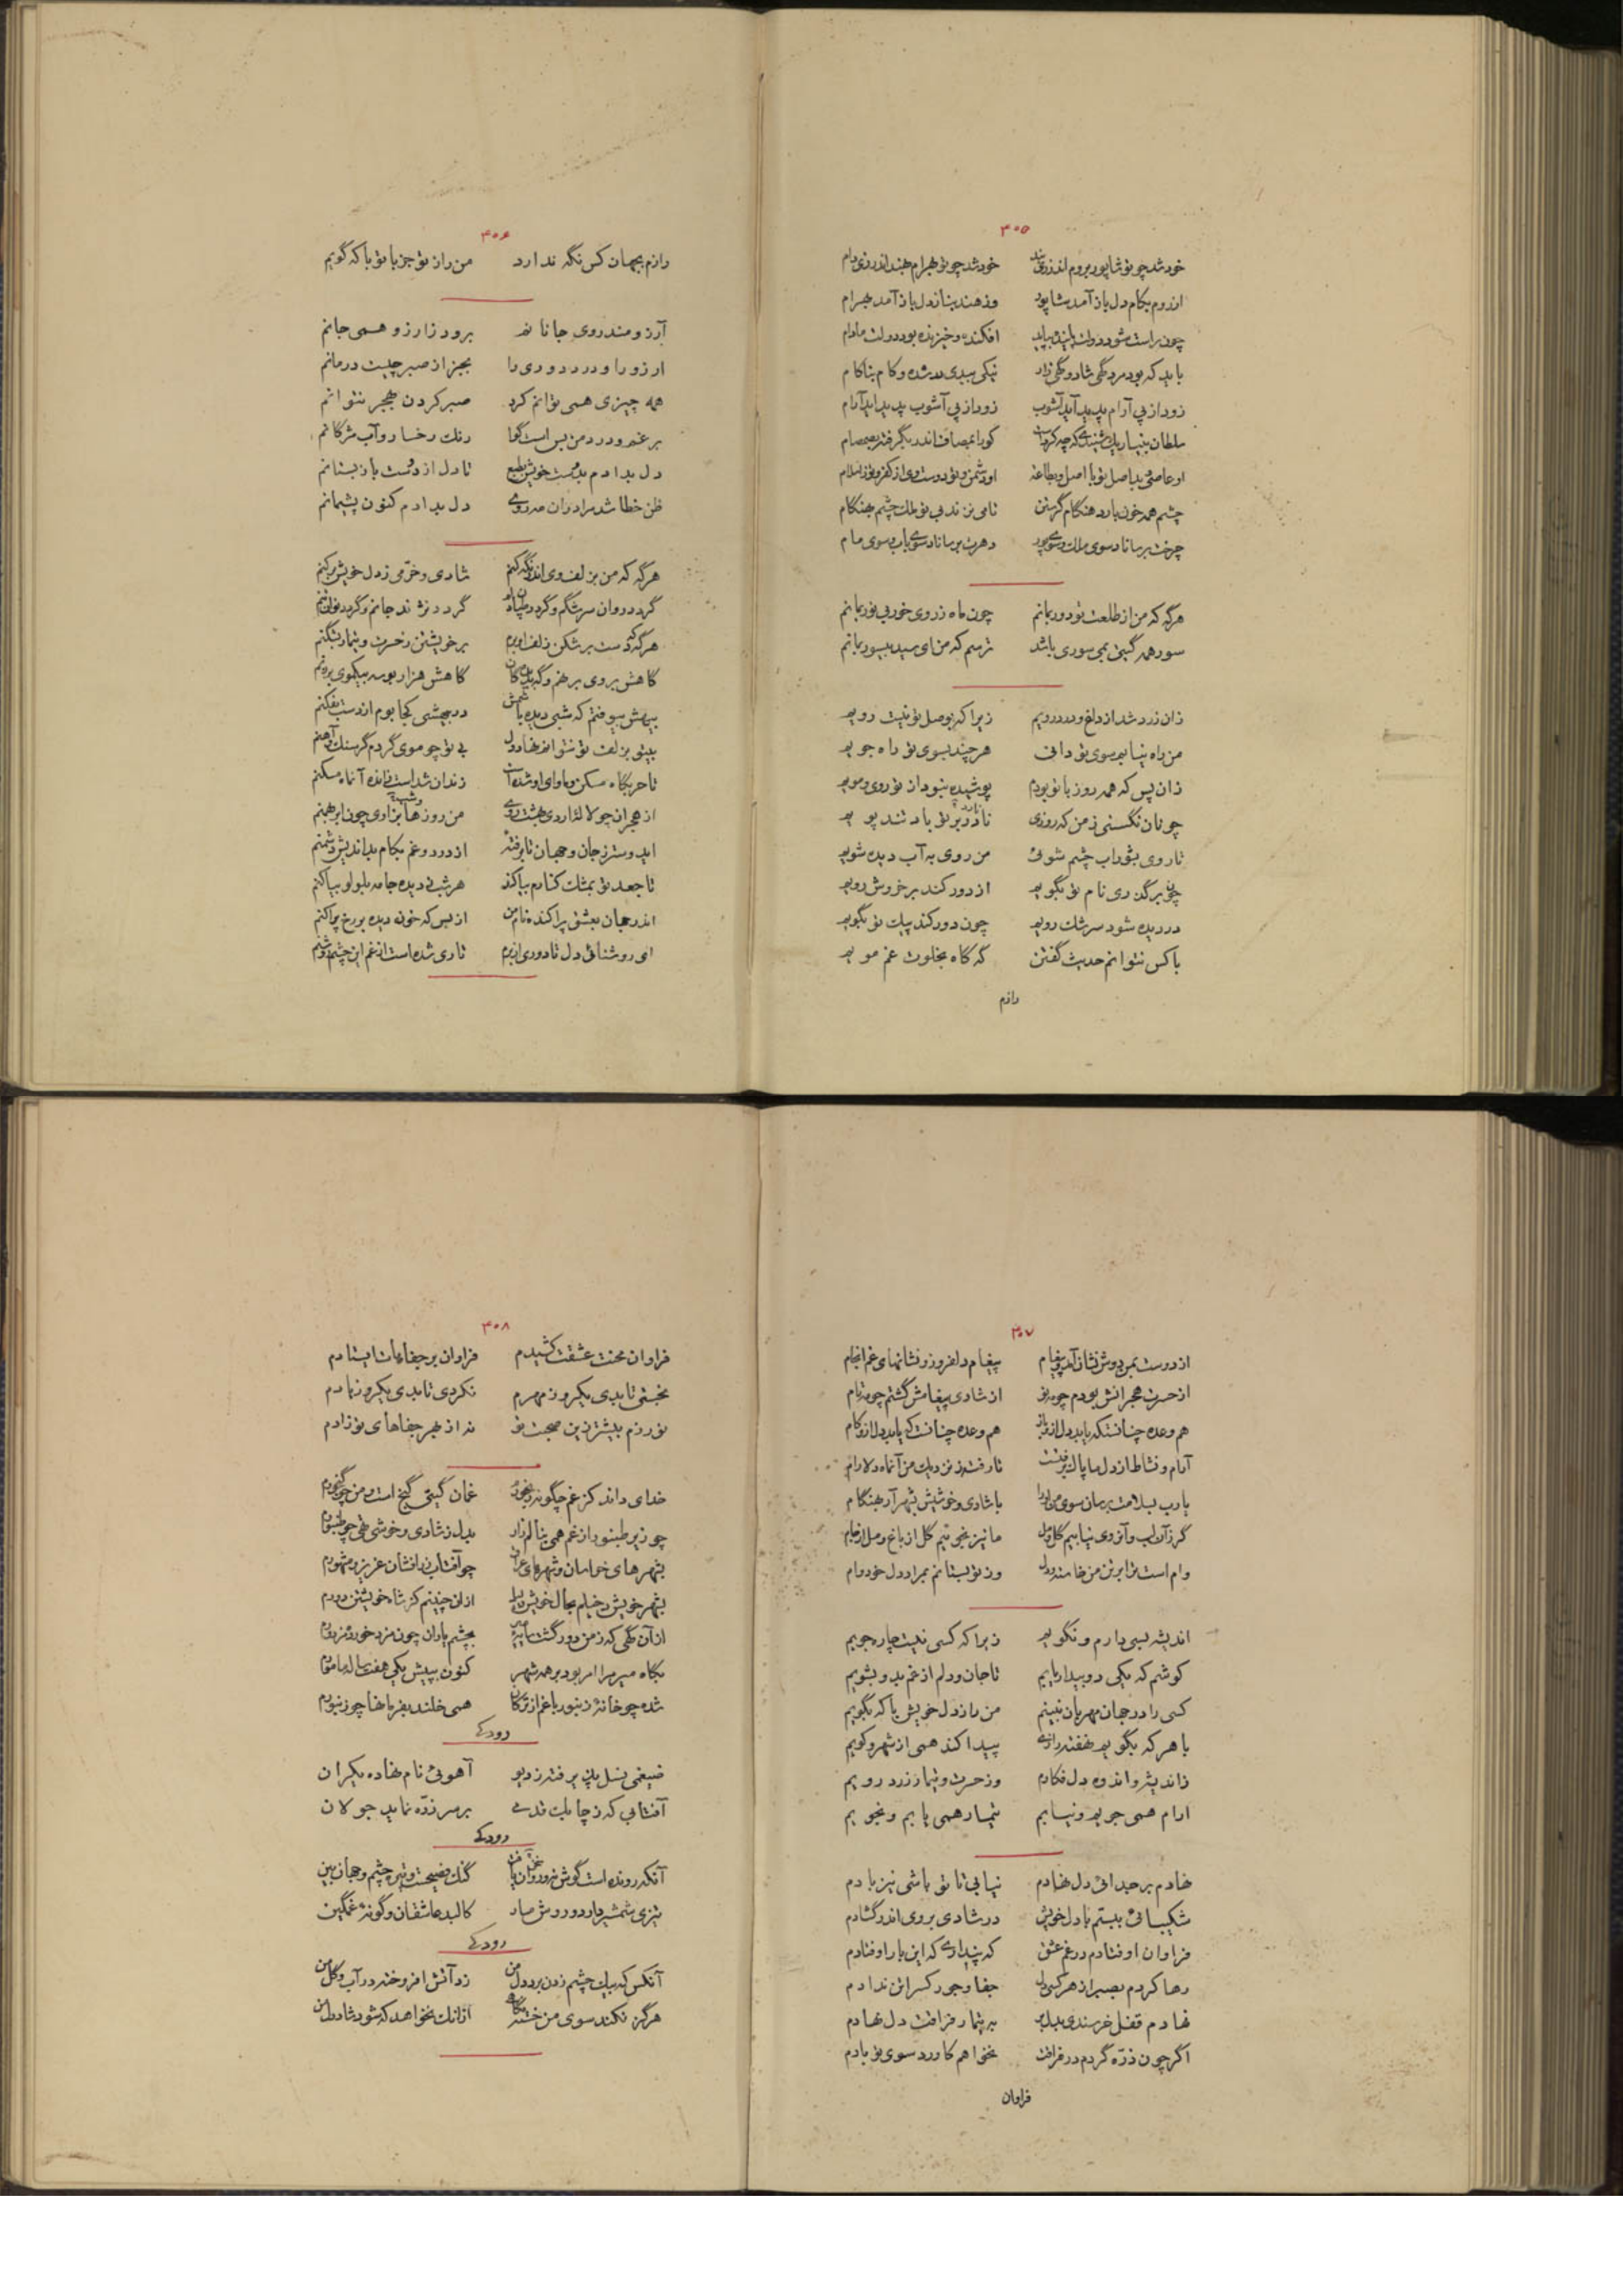 ۴۰۵
خود شد چو تو شاپور بروم اندر زی خود شد چو تو بهرام بهند اندر زی رام
از روم بکام دل باز آمد شاپور وز هند بناز دل باز آمد بهرام
چون راست شود دولت پاینده بپاید افکنده و خیزنده بود دولت مادام
باید که بود مرد گهی شاد و گهی زار نیکی ببدی در شده و کام بناکام
زود از پی آرام پدید آید آشوب زود از پی آشوب پدید آید آرام
سلطان که چه کرد است کورا بمصاف اندر بگرفت بصمصام
او عاصی و بد اصل تو با اصل و بطاعت او دشمن و تو دوست وی از کفر و تو ز اسلام
چشم همه خون بارد هنگام گرستن
چرخت برساناد سوی ملک و سوی پور دهرت برساناد سوی باب و سوی مام
هرگه که من از طلعت تو دور بمانم چون ماه ز روی خور بی نور بمانم
سور همه گیتی بمی سوری باشد ترسم که من ای سید بی سور بمانم
زان زرد شد از داغ و درد رویم زیرا که بوصل تو نیست رویم
من راه نیابم سوی تو دانی هر چند بسوی تو راه جویم
زان پس که همه روز با تو بودم پوشیده نبود از تو روی و مویم
چونان نگسستی ز من که روزی نارد بر تو باد تند بویم
تا روی بشوراب چشم شوئی من روی به آب دیده شویم
چون برگذری نام تو بگویم از دور کند بر خروش رویم
در دیده شود سرشک رویم چون دور کند پیک تو بگویم
با کس نتوانم حدیث گفتن گه گاه بخلوت غم مویم
رازم
۴۰۶
رازم بجهان کس نگه ندارد من راز تو جز با تو با که گویم
آرزومند روی جانانم برود زارزو همی جانم
ارزو را و درد دوری را بجز از صبر چیست درمانم
همه چیزی همی توانم کرد صبر کردن بهجر نتوانم
بر غم و درد من بس است گوا رنک رخسار و آب مژگانم
دل بدادم بدست خویش بطبع تا دل از دست باز بستانم
ظن خطا شد مرا دران مه روی دل بدادم کنون پشیمانم
هرگه که من بزلف وی اندر نگه کنم شادی و خرّمی ز دل خویش برکنم
گردد روان سرشکم و گردد گردد نژند جانم و گردد
هرگه که دست بر شکن زلف او برم بر خویشتن ز حسرت و تیمار بشکنم
کاهش بروی برنهم و گه کاهش هزار بوسه بیکموی برزنم
بیهش بیوفتم که شبی دیده باشمش در بیهشی کجا بوم از دست بفکنم
بیتو بزلف تو نتوانم نهاد دل بی تو چو موی گردم گر سنگ و آهنم
تا جربگاه مسکن و ماوای او شده است زندان شد است آنماه مسکنم
از هجران چو لاله من روز و شب بزاری چون ابر بهمنم
اید وستر ز جان و جهان تا برفته از درد و غم بکام بداندیش دشمنم
تا جعد تو بمشک کنارم بیاکند هر شب ز دیده جامه بلولو بیاکنم
اندر جهان بعشق پراکنده نام من از بس که خون دیده بر رخ پراکنم
ای روشنائی دل تا دوری از برم تاری شده است از غم این چشم روشنم
۴۰۷
از دوست بمن دوش نشان آمد و پیغام پیغام دلفروز و نشانهای غم انجام
از حسرت هجرانش بودم چو از شادی پیغامش گشتم چو
هم وعده چنانست که یابد دل ازو ناز هم وعده چنانست که یابد دل ازو کام
آرام و نشاط از دل ما پاک برفتست تا رفت ز نزدیک من آنماه دلارام
یارب بسلامت برسان سوی من او را با شادی و خوشیش بشهر آر بهنگام
گر زآن لب و آنروی نیابیم گل و مل ما نیز نجوئیم گل از باغ و مل از جام
وام است ترا بر تن من خاسته در دل وز تو بستانم بمراد دل خود وام
اندیشه بسی دارم و نگویم زیرا که کسی نیست چاره جویم
کوشم که یکی دو بیدار یابم تا جان و دلم از غم بدو بشویم
کسی را در جهان مهربان نبینم من راز دل خویش با که بگویم
با هر که بگویم نهفته رازی پیدا کند همی از شهر و کویم
زاندیشه و اندوه دل فکارم وز حسرت و تیمار زرد رویم
ارام همی جویم و نیابم تیمار همی یابم و نجویم
نهادم بر جدائی دل نهادم نیابی تا تو باشی نیز یادم
شکیبائی ببستم با دل خویش در شادی بروی اندر گشادم
فراوان اوفتادم در غم عشق که پنداری که این بار اوفتادم
رها کردم بصبر از هر کسی دل جفا و جور کس را تن ندادم
نهادم قفل خرسندی بدل بر بر تیمار فراقت دل نهادم
اگر چون ذرّه گردم در فراقت نخواهم کاورد سوی تو بادم
فراوان
۴۰۸
فراوان محنت عشقت کشیدم فراوان بر جفاءات ایستادم
نجستی تا بدی یکروز مهرم نکردی تا بدی یکروز یادم
نورزم بیشتر زین صحبت تو نه از بهر جفاهای تو زادم
خدای داند کز غم چگونه رنجورم غمان گیتی گنج است و من چو گنجورم
چو زیر طنبور از غم همی بنالم زار بدل ز شادی و خوشی تهی چو طنبورم
بشهرهای خراسان و شهرهای عراق چو آفتاب درفشان عزیز و مشهورم
بشهر خویش درخیلم بحال خویش از ان چنینم کز شاه خویشتن دورم
از آن گهی که ز من دور گشت بچشم یاران چون
بگاه میر مرا امر بود بر همه شهر کنون به پیش یکی هفت ساله مامورم
شده چو خانهٔ زنبور با غم از ترکان همی خلند بفرمانها چو زنبورم
رودکی
ضیغمی نسل پذیرفته ز دیو آهوئی نام نهاده یکران
آفتابی که ز چابک قدمی بر سر ذرّه نماید جولان
رودکی
آنکه رونده است گوش نه و روان یافت گنک فصیحست و تیز چشم و جهان بین
تیزی شمشیر دارد و روش مار کالبد عاشقان و گونهٔ غمگین
رودکی
آنکس که بیک چشم زدن برد دل من زد آتش افروخته در آب و گل من
هرگز نکند سوی من خسته نگاهی ازانک نخواهد که شود شاد دل من